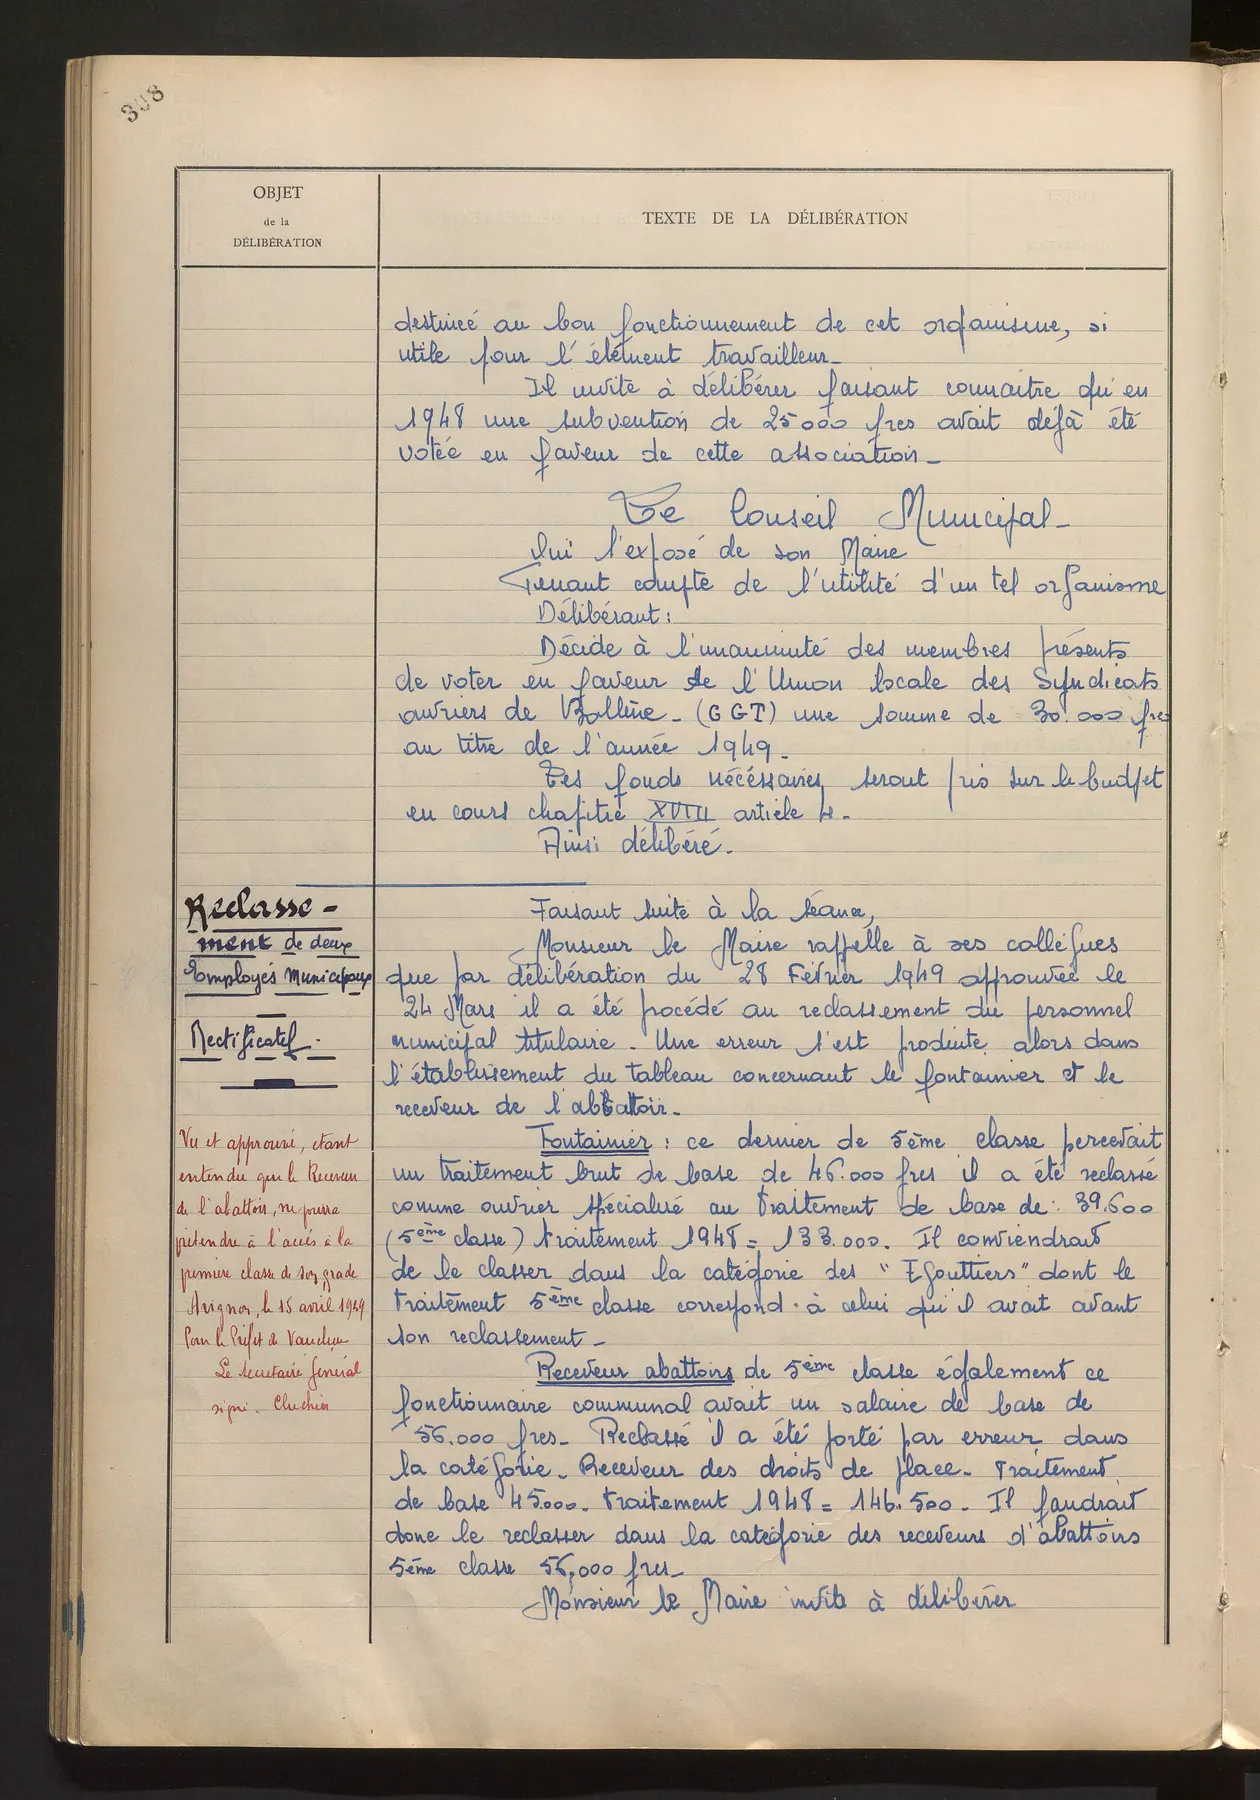 308
OBJET
de la
DÉLIBÉRATION
TEXTE DE LA DÉLIBÉRATION
destinée au bon fonctionnement de cet organisme, si
utile pour l'élément travailleur_
Il invite à délibérer faisant connaitre qu'en
1948 une subvention de 25000 frcs avait déjà été
votée en faveur de cette association_
Le Conseil Municipal_
Ouï l'exposé de son Maire
Tenant compte de l'utilité d'un tel organisme
Délibérant:
Décide à l'unanimité des membres présents
de voter en faveur de l'Union locale des Syndicats
ouvriers de Bollène_ (GGT) une somme de 30.000 frcs
au titre de l'année 1949_
Les fonds nécéssaires seront pris sur le budget
en cours chapitre XVIII article 4_
Ainsi délibéré_
Reclasse-
ment de deux
Employés Municipaux
Rectificatif.
Faisant suite à la séance,
Monsieur le Maire rappelle à ses collègues
que par délibération du 28 Février 1949 approuvée le
24 Mars il a été procédé au reclassement du personnel
municipal titulaire_ Une erreur s'est produite alors dans
l'établissement du tableau concernant le fontainier et le
receveur de l'abbattoir_
Fontainier: ce dernier de 5ème classe percevait
un traitement brut de base de 46.000 frcs il a été reclassé
comme ouvrier spécialisé au traitement de base de: 39.600
(5ème classe) traitement 1948 = 133.000. Il conviendrait
de le classer dans la catégorie des "Egouttiers" dont le
traitement 5ème classe correspond à celui qu'il avait avant
son reclassement_
Receveur abattoirs de 5ème classe également ce
fonctionnaire communal avait un salaire de base de
56.000 frcs_ Reclassé il a été porté par erreur dans
la catégorie_ Receveur des droits de place_ Traitement
de base 45000_ traitement 1948 = 146.500_ Il faudrait
donc le reclasser dans la catégorie des receveurs d'abattoirs
5ème classe 56,000 frcs_
Monsieur le Maire invite à délibérer
Vu et approuvé, étant
entendu que le Receveur
de l'abattoir, ne pourra
prétendre à l'accès à la
première classe de son grade
Avignon, le 15 avril 1949
Pour le Préfet de Vaucluse
Le Secrétaire Général
signé_